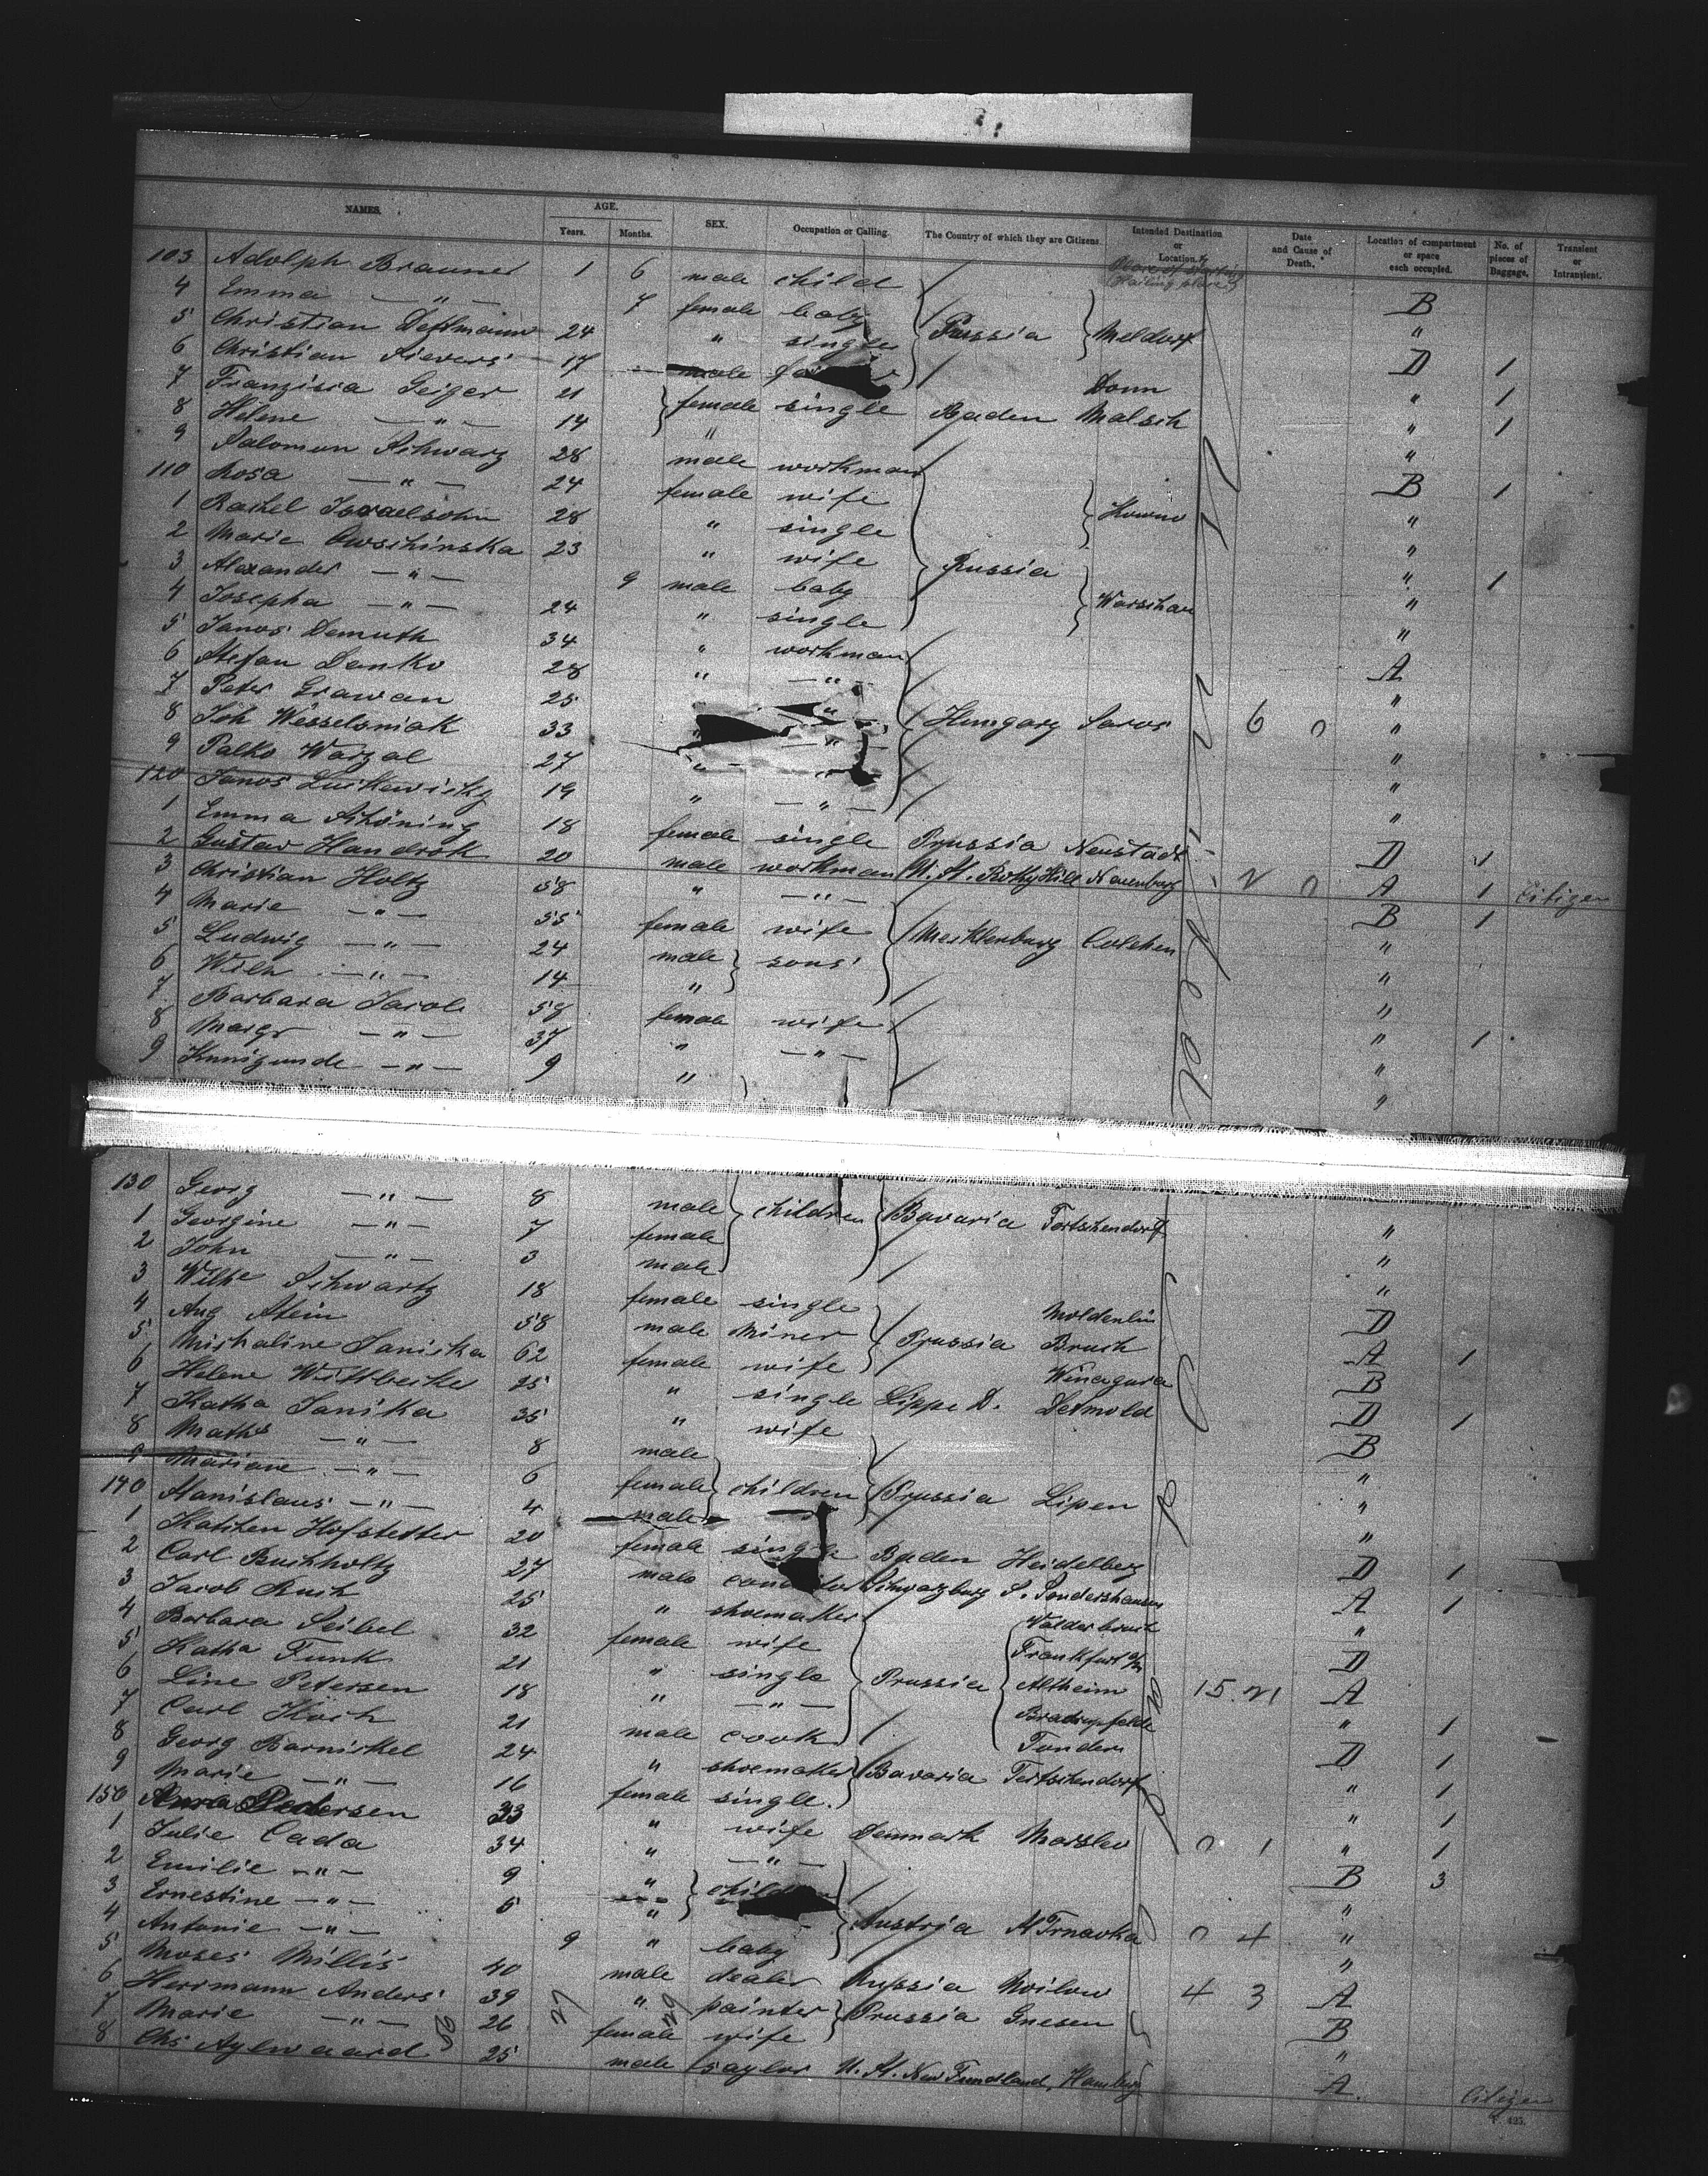 NAMES. AGE. Years. Months. SEX. Occupation or Calling. The Country of which they are Citizens. Intended Destination or Location. Date and Cause of Death. Location of compartment or space each occupied. No. of pieces of Baggage. Transient or Intransient.
103 Adolph Brauner 1 6 male child B
4 Emma — " — 7 female baby Prussia Meldorf "
5 Christian 24 " single D 1
6 Christian Sievers 17 male Donn " 1
7 Franziska Geiger 21 female single Baden Malsch " 1
8 Helene — " — 14 " "
9 Salomon Schwarz 28 male workman B 1
110 Rosa — " — 24 female wife Kowno "
1 Rachel Israelsohn 28 " single "
2 Marie Owschinska 23 " wife Russia " 1
3 Alexander — " — 9 male baby Warschau "
4 Josepha — " — 24 " single "
5 Janos Demuth 34 " workman A
6 Stefan Danko 28 " — " — "
7 Peter Grawan 25 " Hungary Saros 6 0 "
8 Joh Wesselsniak 33 " — " — "
9 Palko Warzal 27 " " "
120 Janos 19 " — " — "
1 Emma Schöning 18 female single Prussia Neustadt D 1
2 Gustav Handrok 20 male workman U. St. Hill 2 0 A 1 Citizen
3 Christian Holtz 58 " — " — B 1
4 Marie — " — 55 female wife Mecklenburg "
5 Ludwig — " — 24 male sons "
6 Wilh — " — 14 " "
7 Barbara Jacob 59 female wife " 1
8 Margr — " — 37 " — " — "
9 Kunigunde — " — 9 " "
130 Georg — " — 8 male children Bavaria "
1 Georgine — " — 7 female "
2 John — " — 3 male "
3 Wilhe Schwartz 18 female single D
4 Aug Stein 58 male Miner Prussia Bruch A 1
5 Michaline Janicka 62 female wife Winagura B
6 Helene 25 " single Lippe D. Detmold D 1
7 Katha Janika 35 " wife B
8 Maths — " — 8 male "
9 Mariane — " — 6 female children Prussia Lipen "
140 Stanislaus — " — 4 male "
1 Kätchen Hofstetter 20 female single Baden Heidelberg D 1
2 Carl Buchholtz 27 male Schwarzburg S. Sondershausen A 1
3 Jacob 25 " shoemaker "
4 Barbara Seibel 32 female wife Frankfurt a/M D
5 Katha Funk 21 " single Prussia Altheim 15 21 A
6 Line Petersen 18 " — " — " 1
7 Carl Koch 21 male cook Tondern D 1
8 Georg Barnickel 24 " shoemaker Bavaria " 1
9 Marie — " — 16 female single " 1
150 Anna Pedersen 33 " wife Denmark Marslev 0 1 " 1
1 Julie Cada 34 " — " — B 3
2 Emilie — " — 9 " children "
3 Ernestine — " — 5 " Austria 0 4 "
4 Antonie — " — 9 " baby "
5 Moses Millis 40 male dealer Russia 4 3 A
6 Herrmann Anders 39 " painter Prussia Gnesen B
7 Marie — " — 26 female wife "
8 Chs Aylwaard 25 male saylor U. St. New Fundland, Hamburg A Citizen